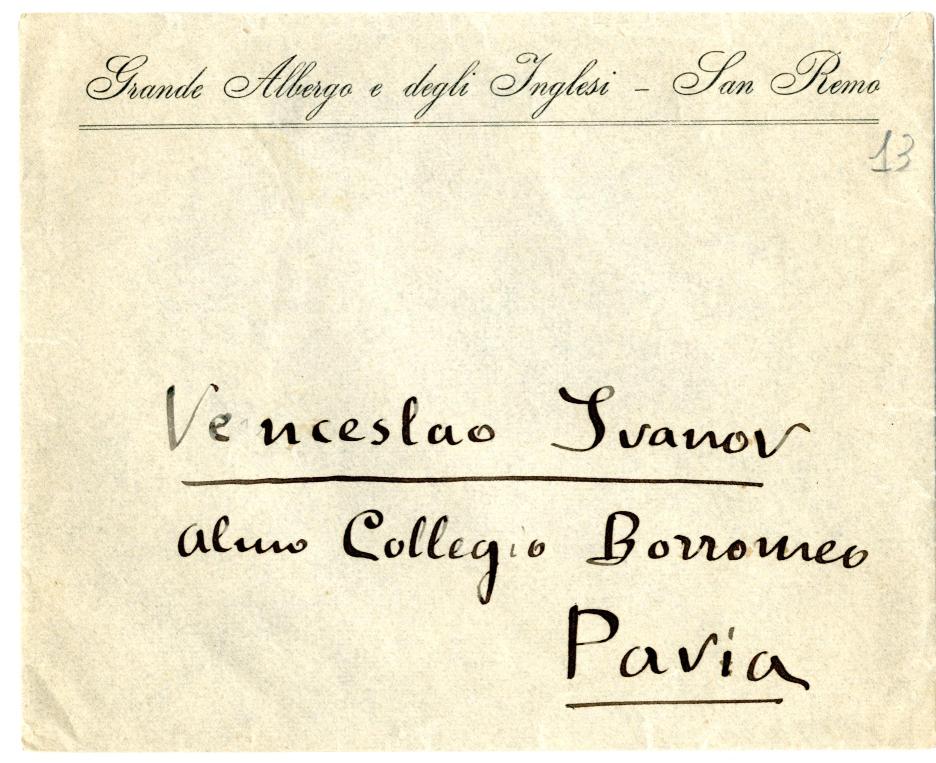 Grande Albergo e degli Inglesi – San Remo
13
Venceslao Ivanov
almo Collegio Borromeo
Pavia